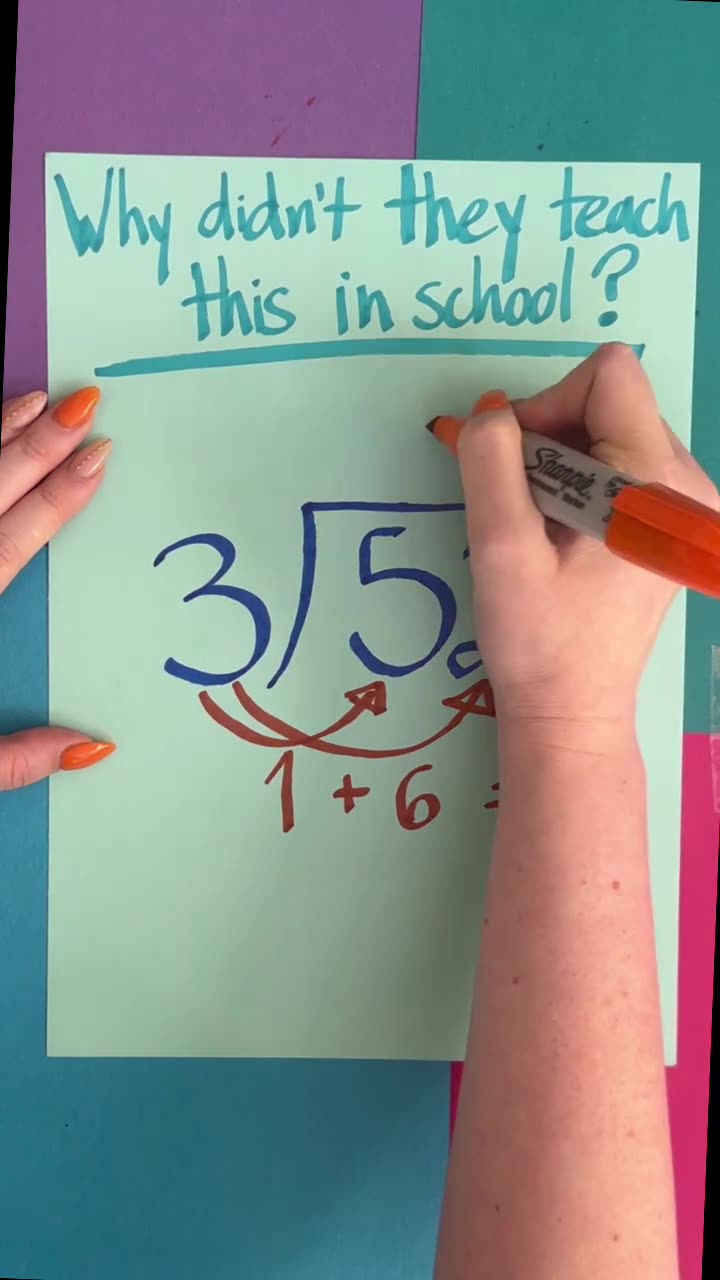 Why didn't they teach
this in school?
Sharpie
3 5
1 + 6 =